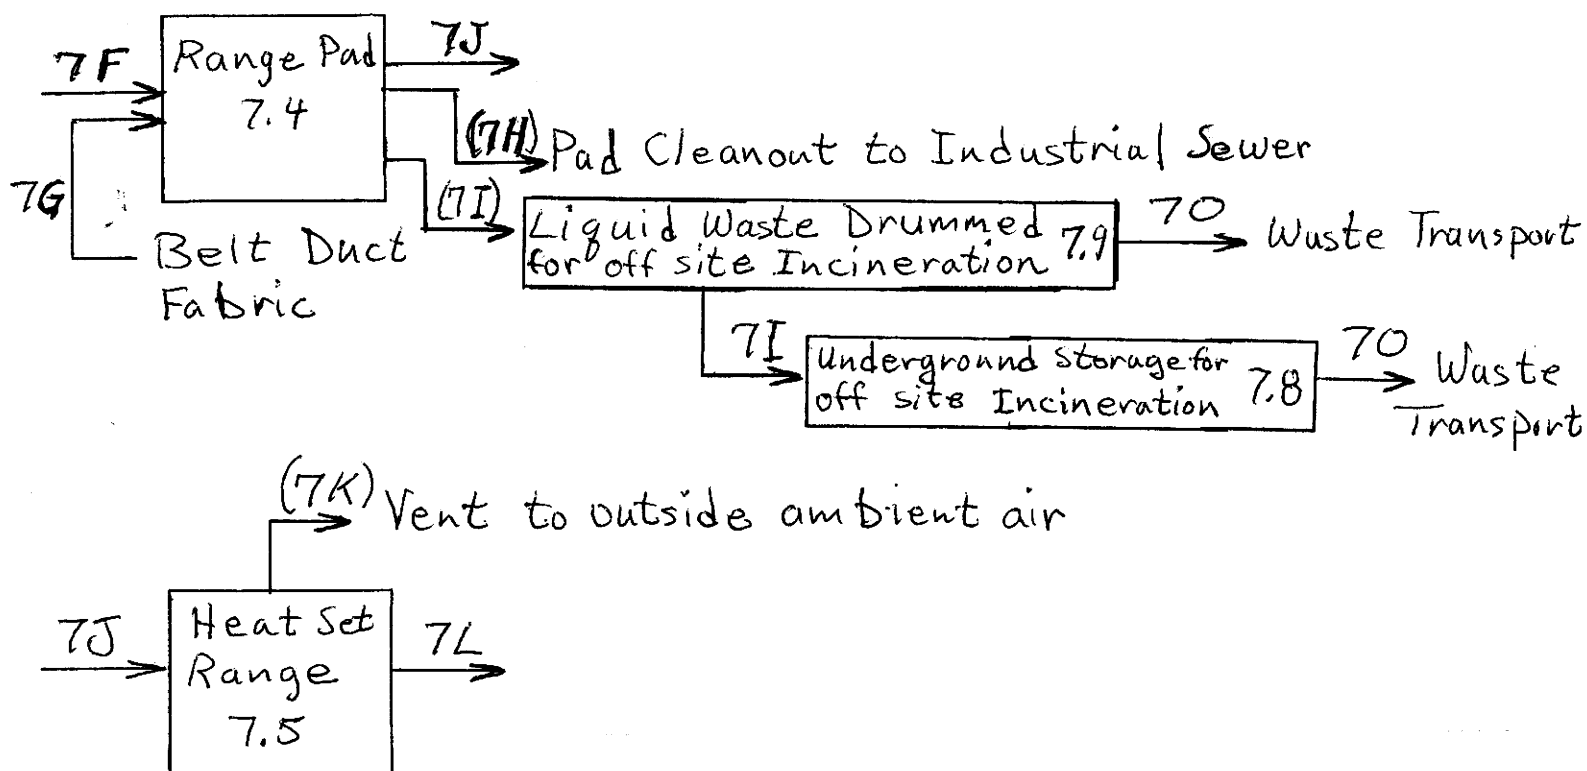 7F
Range Pad
7.4
7J
(7H) Pad Cleanout to Industrial Sewer
7G
Belt Duct
Fabric
(7I)
Liquid Waste Drummed
for off site Incineration 7.9
7O
Waste Transport
7I
Underground Storage for
off site Incineration 7.8
7O
Waste
Transport
(7K) Vent to outside ambient air
7J
Heat Set
Range
7.5
7L